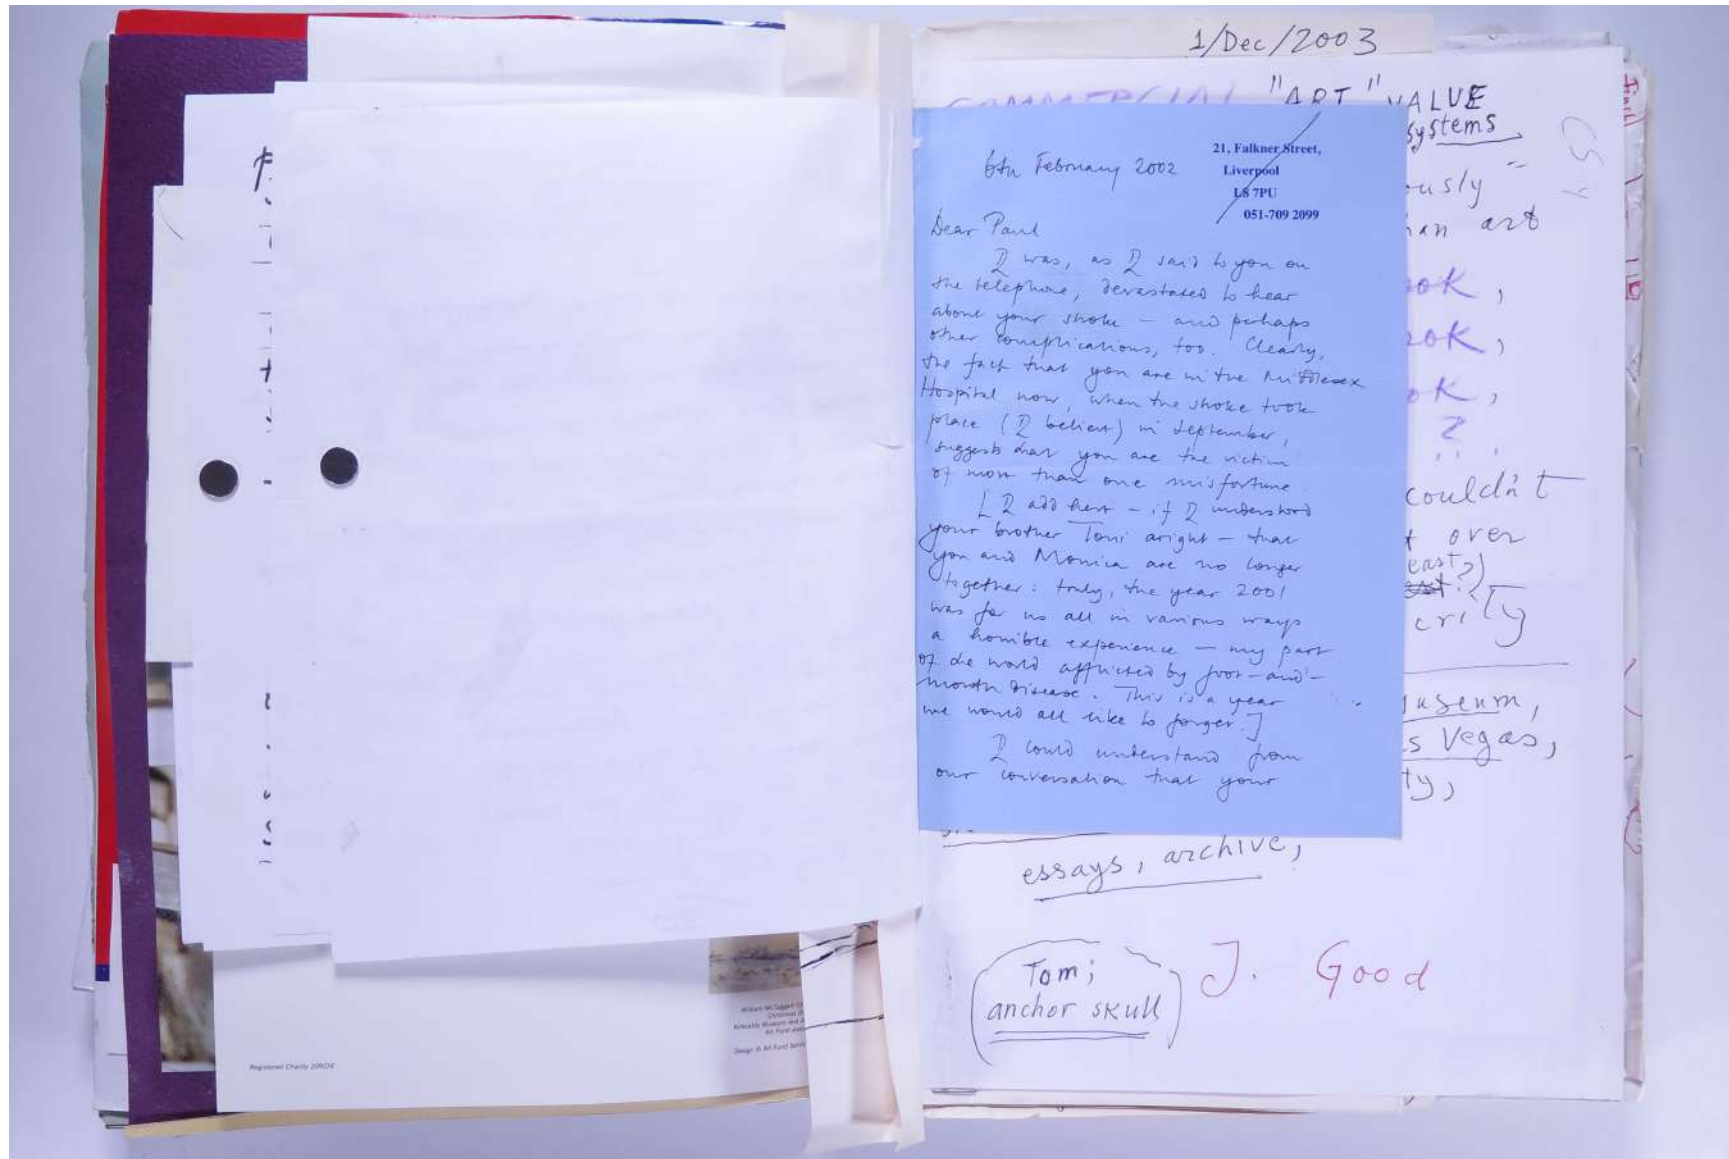 1/Dec/2003
COMMERCIAL "ART" VALUE
systems
ously
an art
ok,
ook,
ok,
?
couldn't
over
east?)
crity
useum,
s Vegas,
ty,
essays, archive,
Tom;
anchor skull
J. Good
21, Falkner Street,
Liverpool
L8 7PU
051-709 2099
6th February 2002
Dear Paul
I was, as I said to you on
the telephone, devastated to hear
about your stroke — and perhaps
other complications, too. Clearly,
the fact that you are in the Middlesex
Hospital now, when the stroke took
place (I believe) in September,
suggests that you are the victim
of more than one misfortune.
[I add here – if I understood
your brother Toni aright – that
you and Monica are no longer
together: truly, the year 2001
was for us all in various ways
a horrible experience – my part
of the world afflicted by foot-and-
mouth disease. This is a year
we would all like to forget.]
I could understand from
our conversation that your
William McTaggart
Christmas
Kirkcaldy Museum and
Art Fund
Design © Art Fund
Registered Charity